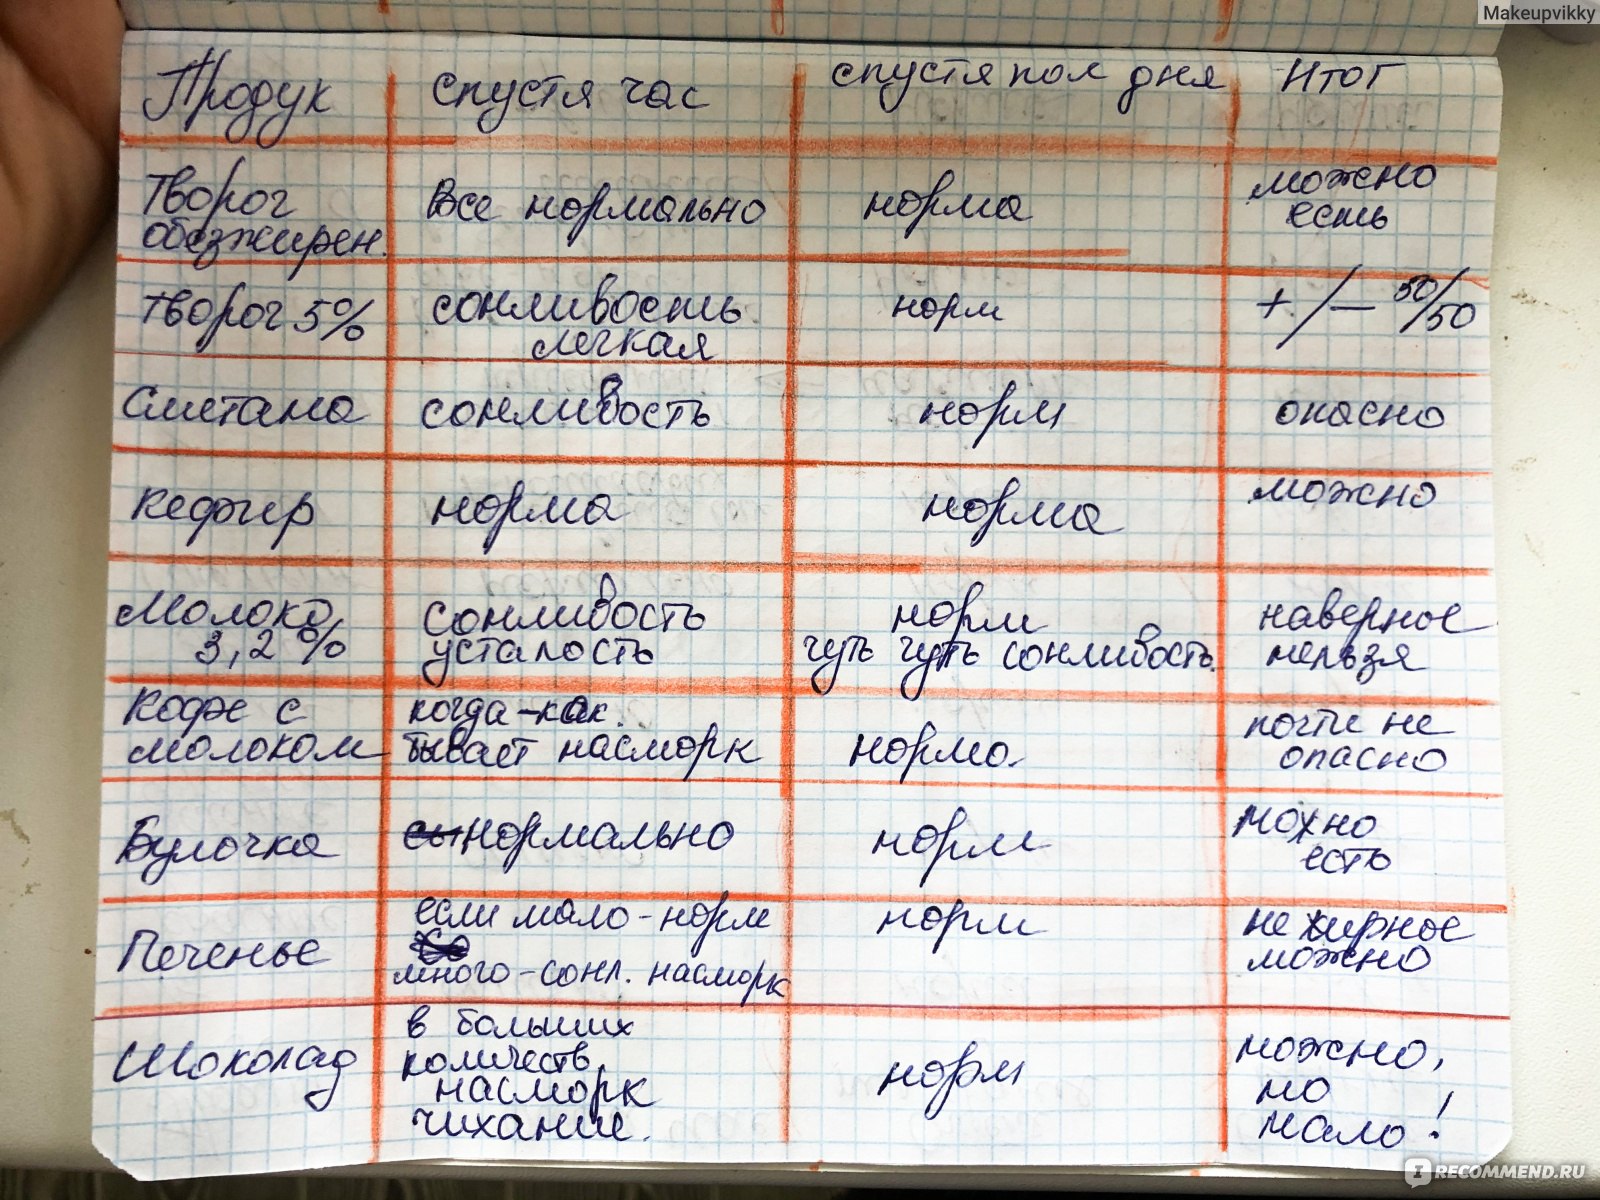 Makeupvikky
Продук спустя час спустя пол дня Итог
Творог обезжирен. Все нормально норма можно есть
Творог 5% сонливость легкая норм +/- 50/50
Сметана сонливость норм опасно
Кефир норма норма можно
Молоко 3,2% сонливость усталость норм чуть чуть сонливость. наверное нельзя
Кофе с молоком когда-как. бывает насморк норма почти не опасно
Булочка нормально норм можно есть
Печенье если мало-норм много-сонл. насморк норм не жирное можно
Шоколад в больших количеств. насморк чихание. норм можно, но мало!
IRECOMMEND.RU